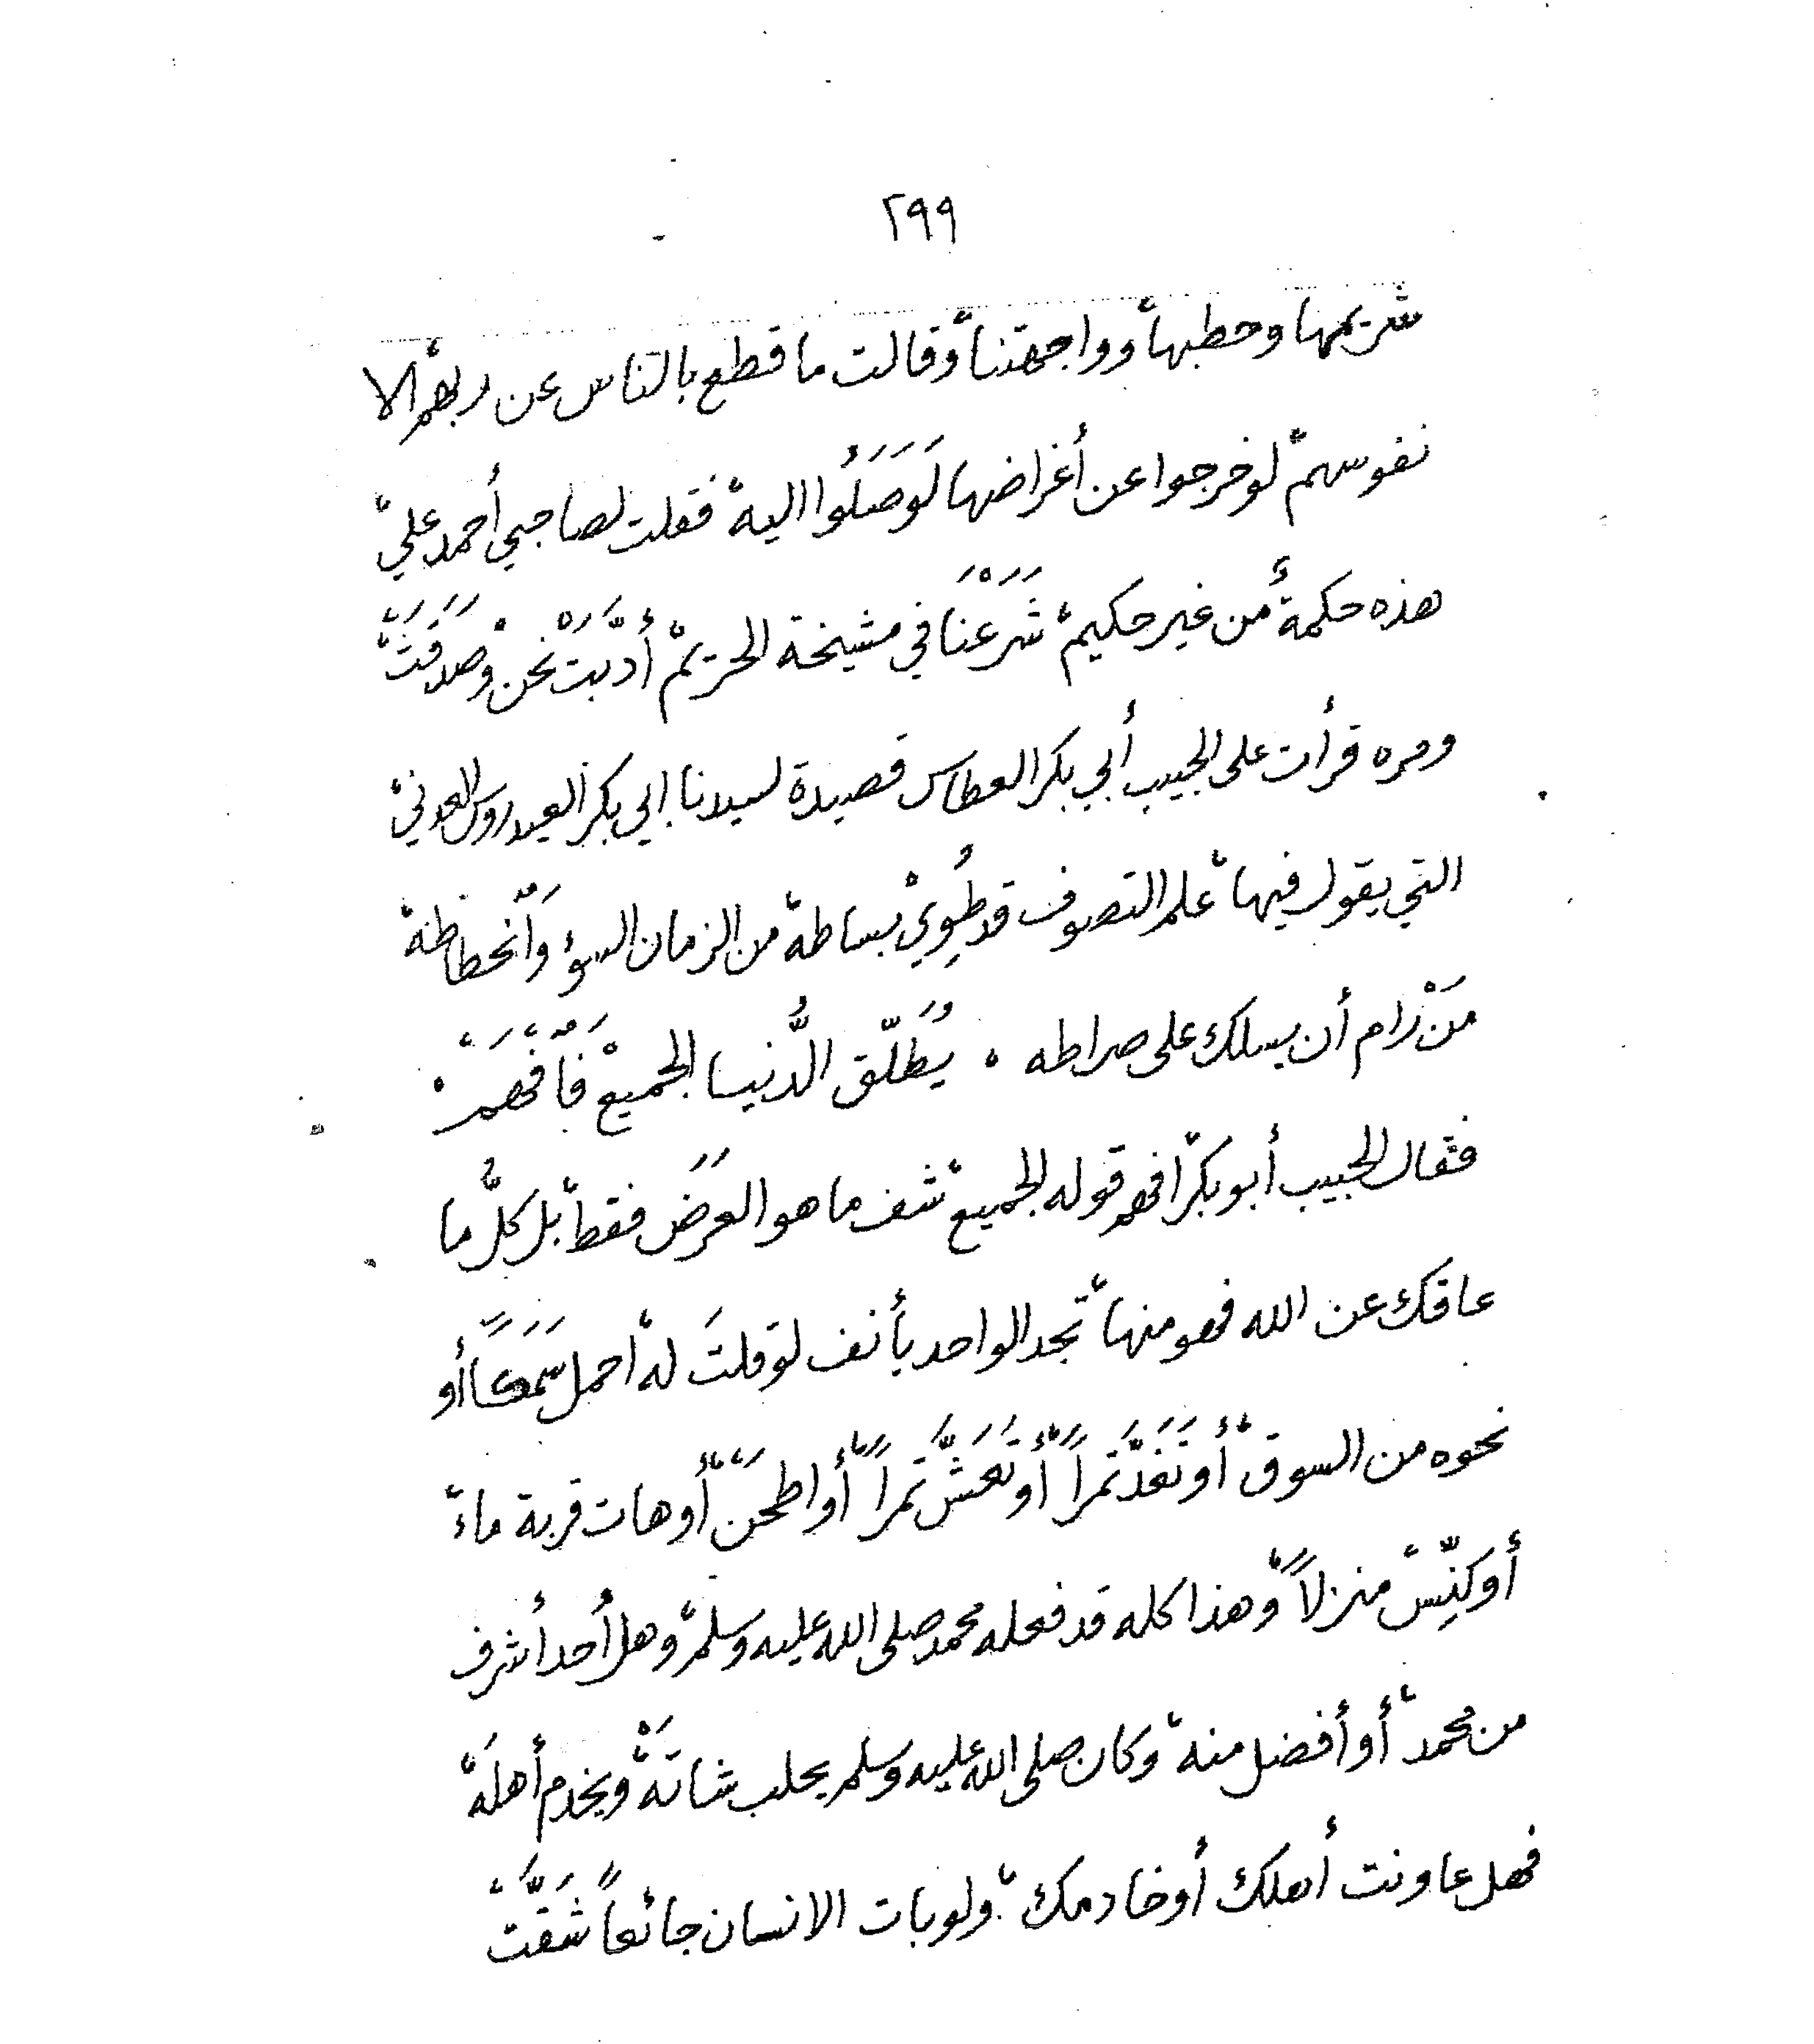 ٢٩٩
شريمها وحطبها، وواجهتنا، وقالت ما قطع بالناس عن ربهم الا
نفوسهم، لو خرجوا عن أغراضها لَوَصَلُوا اليه، فقلت لصاحبي أحمد علي،
هذه حكمةٌ من غير حكيم، شَرَعْنَا في مشيخة الحريم، أدَّبَتْ نحن وصدقَتْ،
ومره قرأت على الحبيب أبي بكر العطاس قصيدة لسيدنا ابي بكر العيدروس العدني،
التي يقول فيها، علم التصوف قد طُوِيْ بساطهْ من الزمان السوء وانْحطاطهْ
مَنْ رام أن يسلك على صراطه . يُطَلّق الدُّنيا الجميعْ فَافْهَمْ .
فقال الحبيب أبو بكر، افهم قوله الجميع، شف ما هو العَرَض فقط، بل كلُّ ما
عاقك عن الله فهو منها، تجد الواحد يأنف لو قلتَ له، احمل سَمَكاً أو
نحوه من السوق، أو تَغَدَّ تمراً، أو تَعَشَّ تمراً، أو اطحَنْ، أو هات قربة ماء،
أو كَنِّسْ منزلاً، وهذا كله قد فعله محمد صلى الله عليه وسلم، وهل أحد أشرف
من محمد، أو أفضل منه، وكان صلى الله عليه وسلم يحلب شاتَهْ، ويخدم أهلَهْ،
فهل عاونت أهلك أو خادمك، ولو بات الانسان جائعاً شَقَّتْ،